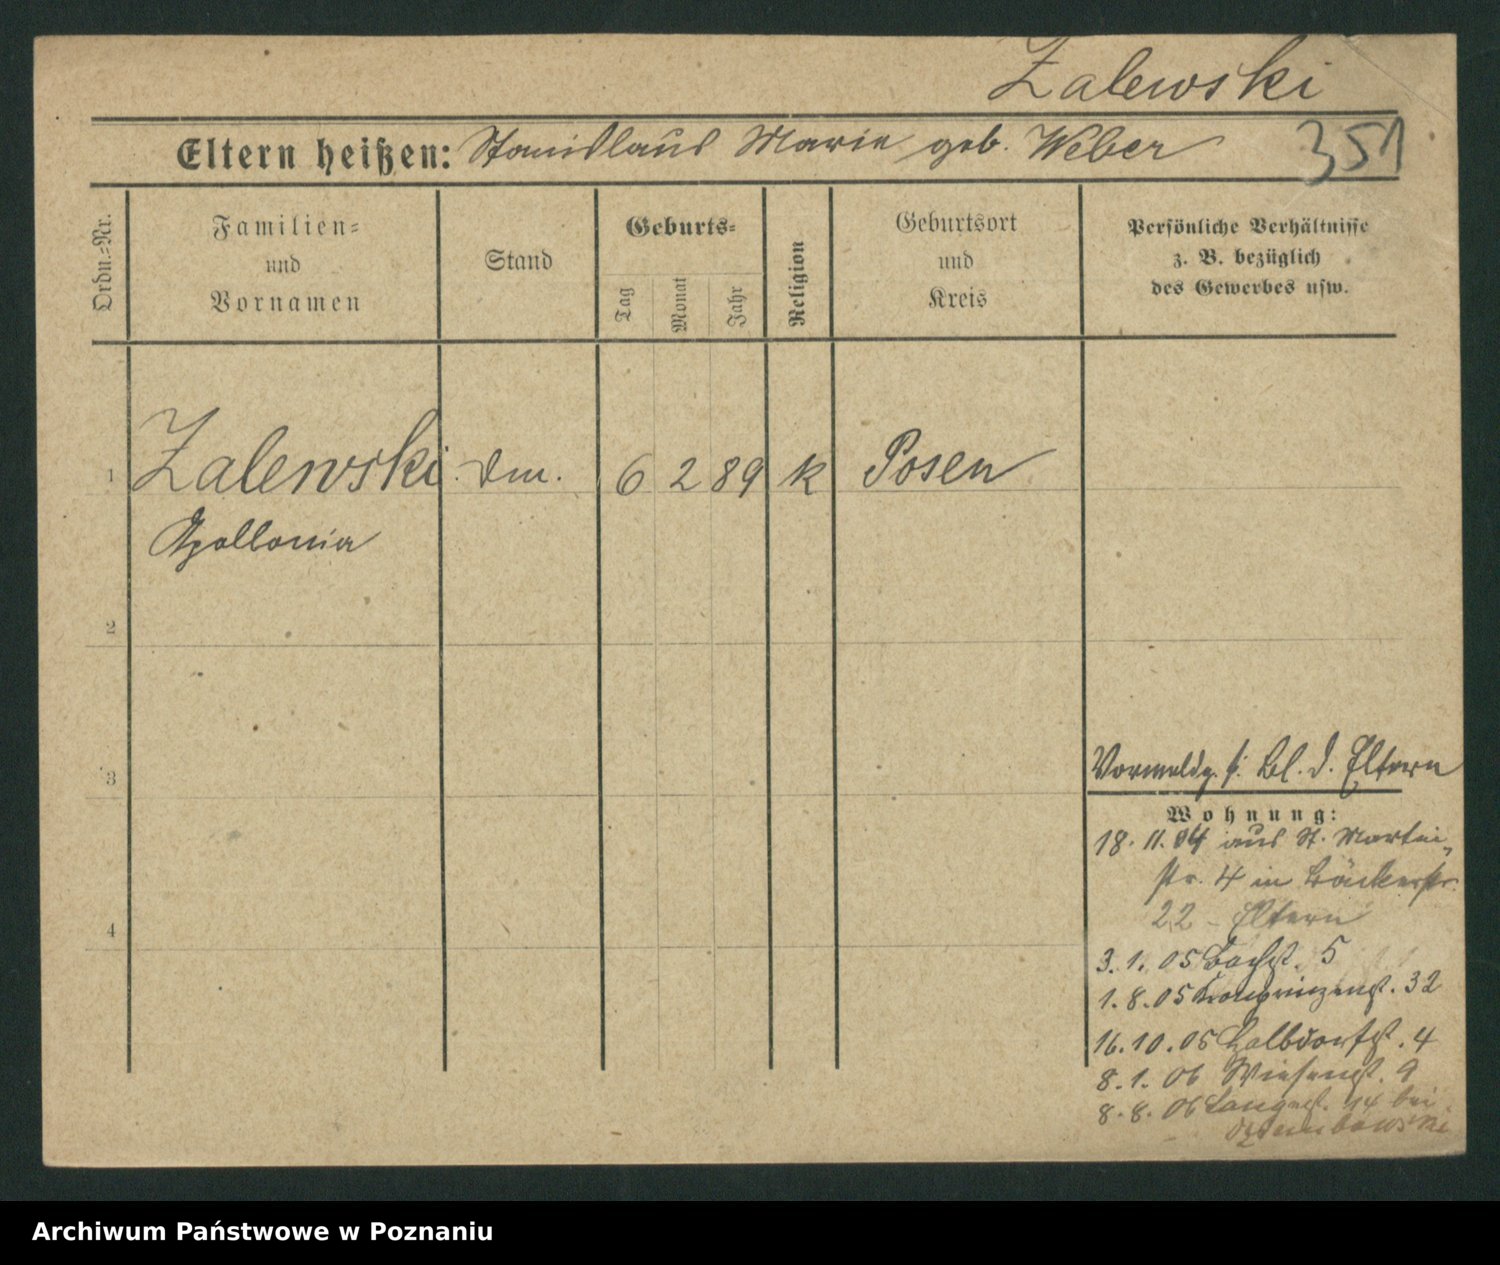 Zalewski
Eltern heißen: Stanislaus Marie geb. Weber 351
Ordn.-Nr.
Familien-
und
Vornamen
Stand
Geburts-
Tag
Monat
Jahr
Religion
Geburtsort
und
Kreis
Persönliche Verhältnisse
z. B. bezüglich
des Gewerbes usw.
1 Zalewski Dm. 6 2 89 k Posen
Apollonia
2
3
4
Vormeldg. s. Bl. d. Eltern
Wohnung:
18. 11. 04 aus St. Martin-
str. 4 in Bäckerstr.
22 - Eltern
3. 1. 05 Bachst. 5
1. 8. 05 Kronprinzenst. 32
16. 10. 05 Halbdorfst. 4
8. 1. 06 Wiesenst. 9
8. 8. 06 Langest. 14 bei
Dziembowski
Archiwum Państwowe w Poznaniu